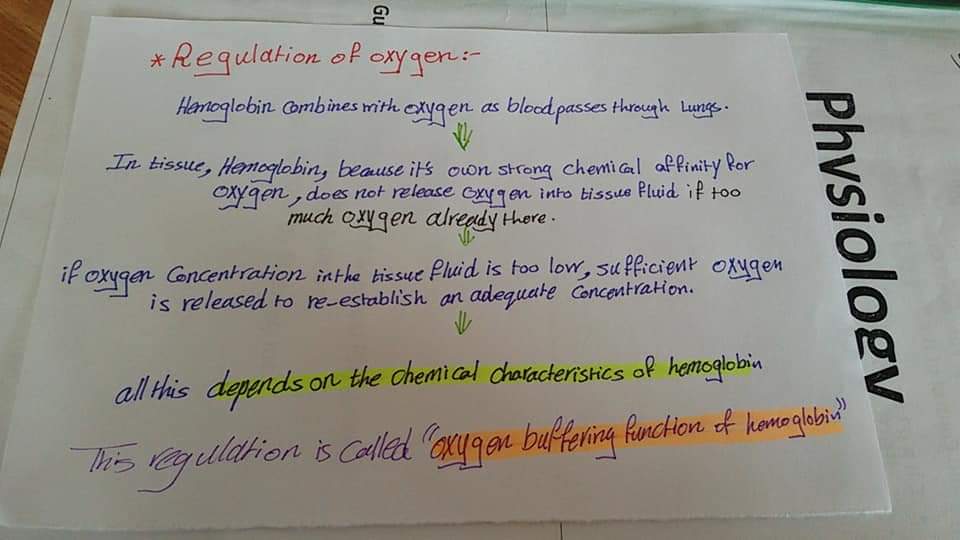 Gu
* Regulation of oxygen:-
Hemoglobin combines with oxygen as blood passes through Lungs.
In tissue, Hemoglobin, because it's own strong chemical affinity for
oxygen, does not release oxygen into tissue fluid if too
much oxygen already there.
if oxygen Concentration in the tissue fluid is too low, sufficient oxygen
is released to re-establish an adequate Concentration.
all this depends on the chemical characteristics of hemoglobin
This regulation is called "oxygen buffering function of hemoglobin"
Physiology